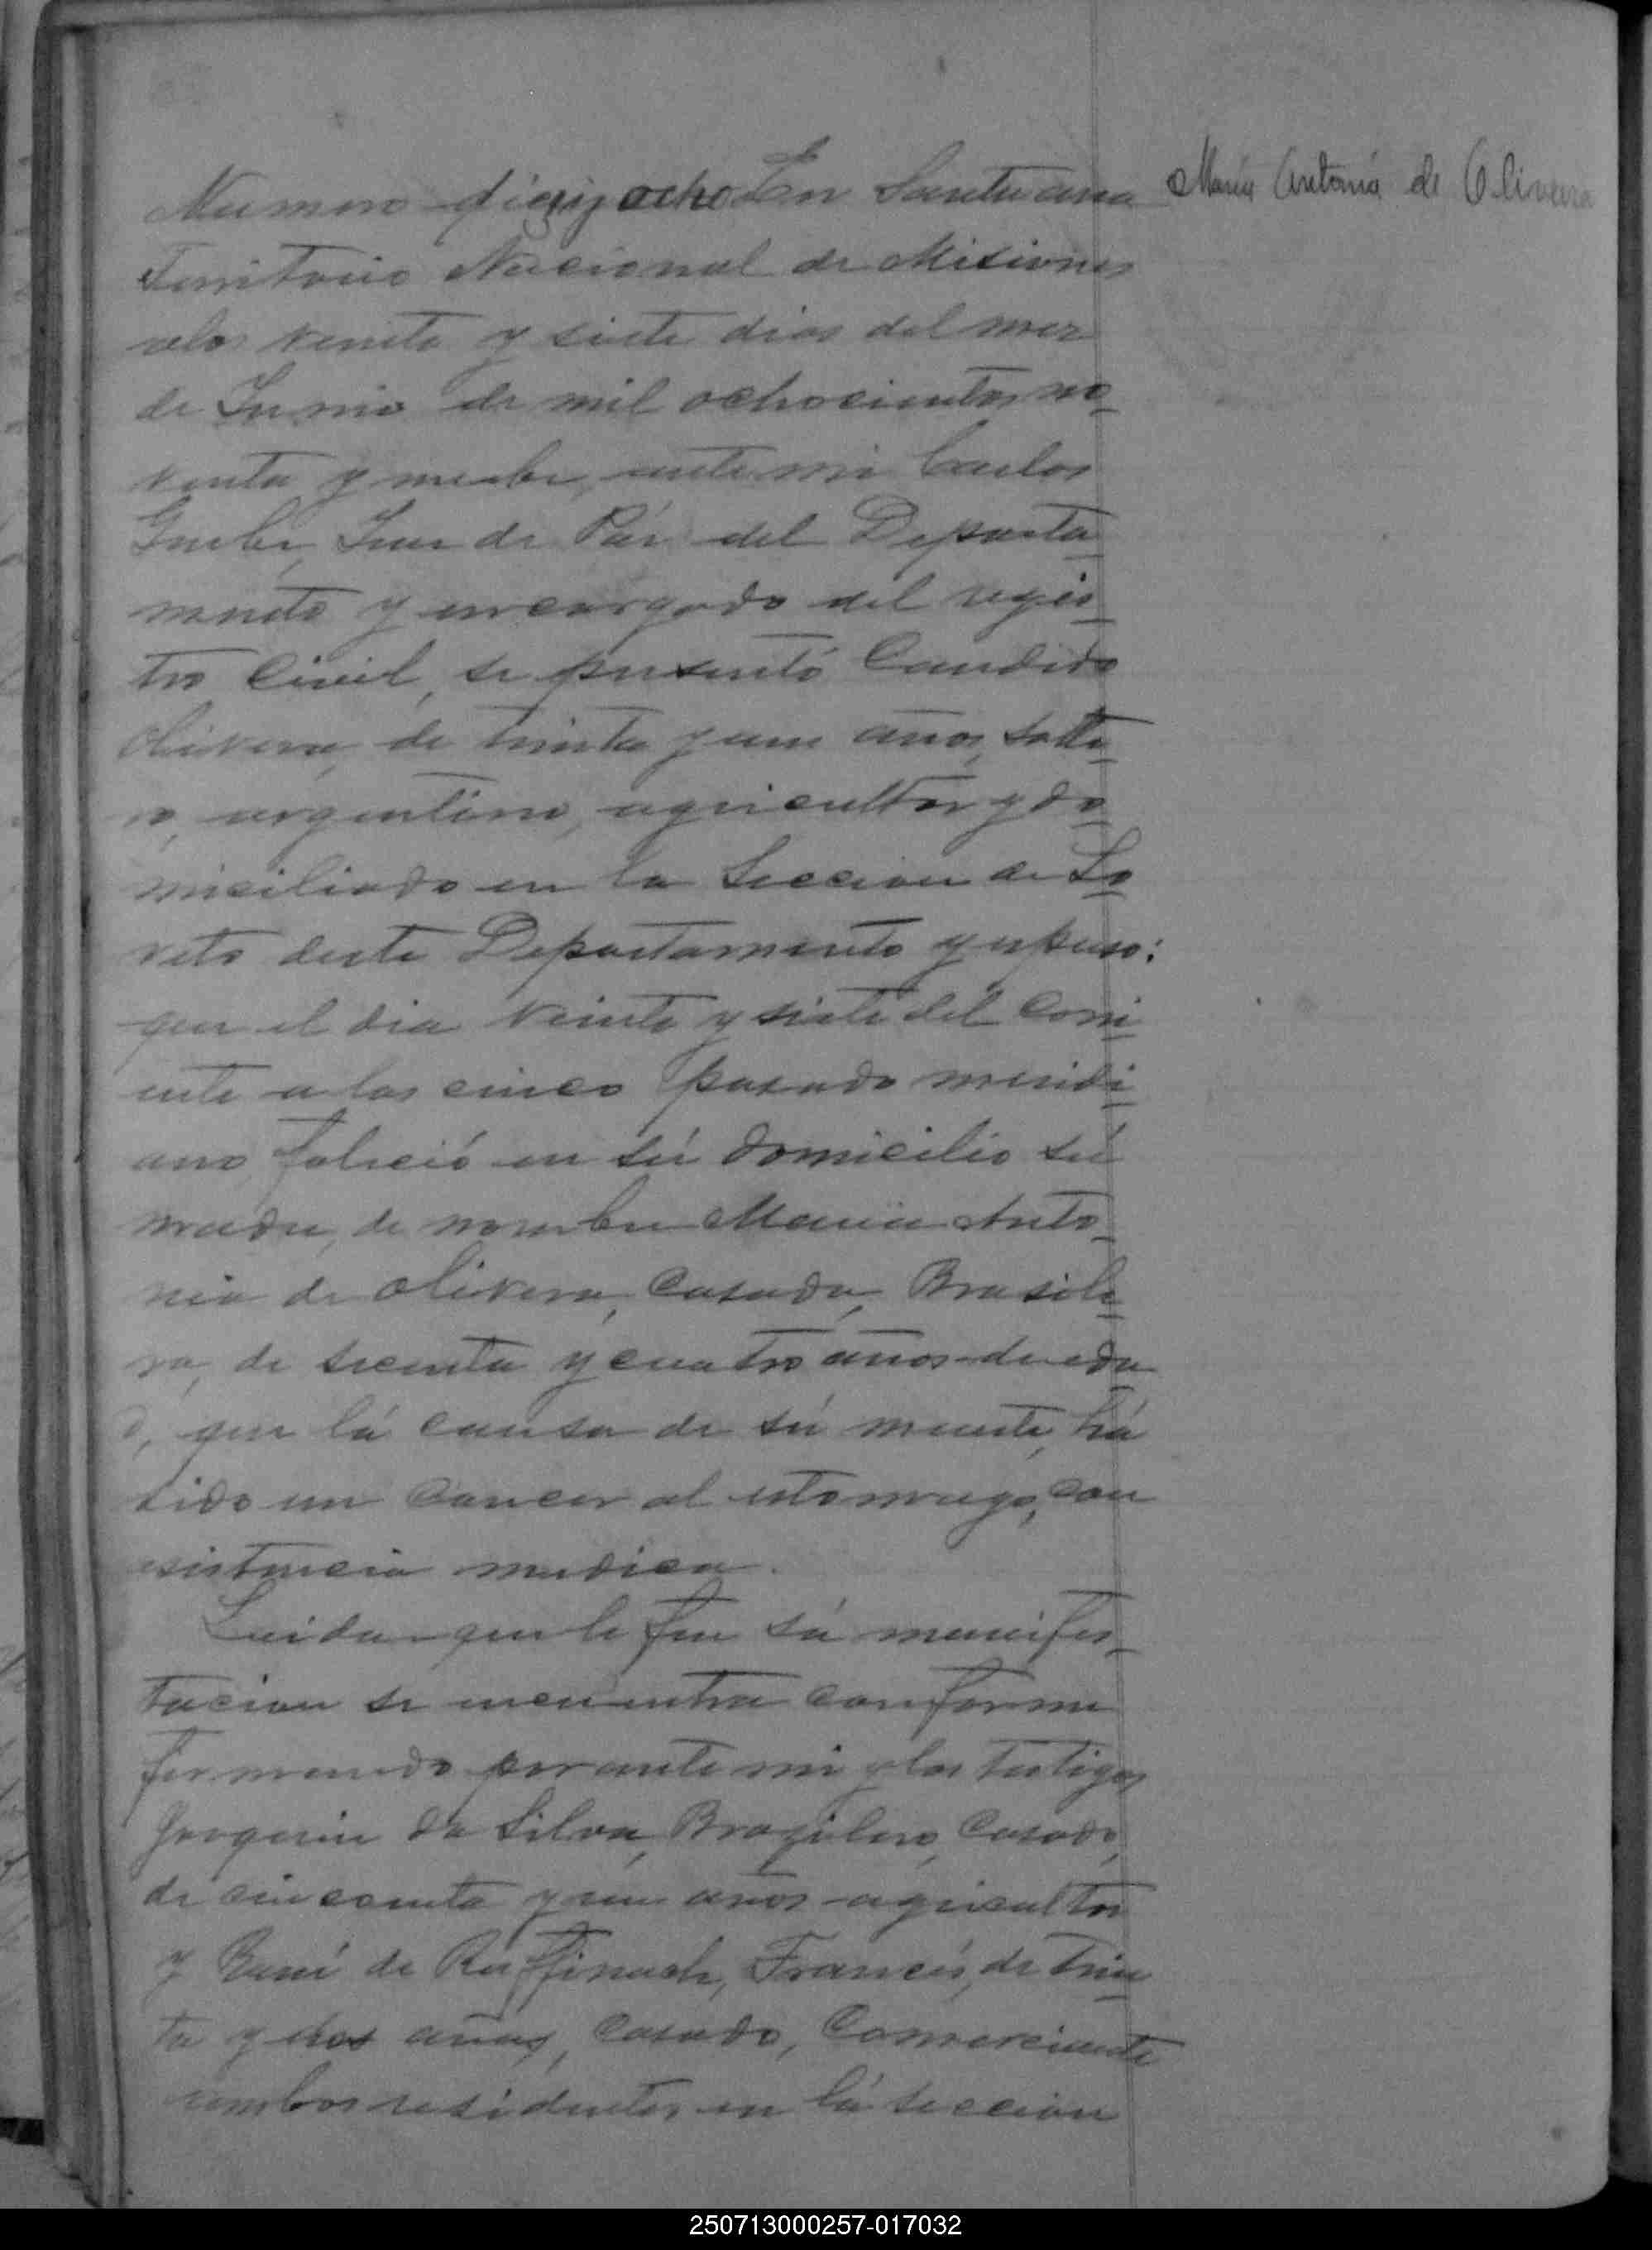 Numero diez y ocho En Santa ana
María Antonia de Oliveira
Territorio Nacional de Misiones
a los veinte y siete dias del mez
de Junio de mil ochocientos no-
venta y nuebe, ante mi Carlos
Juez de Páz del Departa-
mento y encargado del regis-
tro Civil, se presentó Candido
Olivera, de trinta y un años, solte-
ro, argentino, agricultor y do-
miciliado en la Seccion de Lo-
reto deste Departamento y espuso:
que el dia veinte y siete del Corri-
ente a las cinco pasado meridi-
ano, falició en sú domicilio sú
madre, de nombre Maria Anto-
nia de Olivera, Casada, Brasile-
ra, de secenta y cuatro años de eda-
d, que lá causa de sú muerte, há
sido un Cancer al estomago, con
asistencia medica.
Leida que le fue sú manifes-
tacion se encuentra Conforme
firmando por ante mi y los testigos
Joaquin da Silva, Brazilero, Casado,
de cincuenta y un años agricultor
y René de Francés, de trin-
ta y dos años, Casado, Comerciante
ambos residentes en lá seccion
250713000257-017032